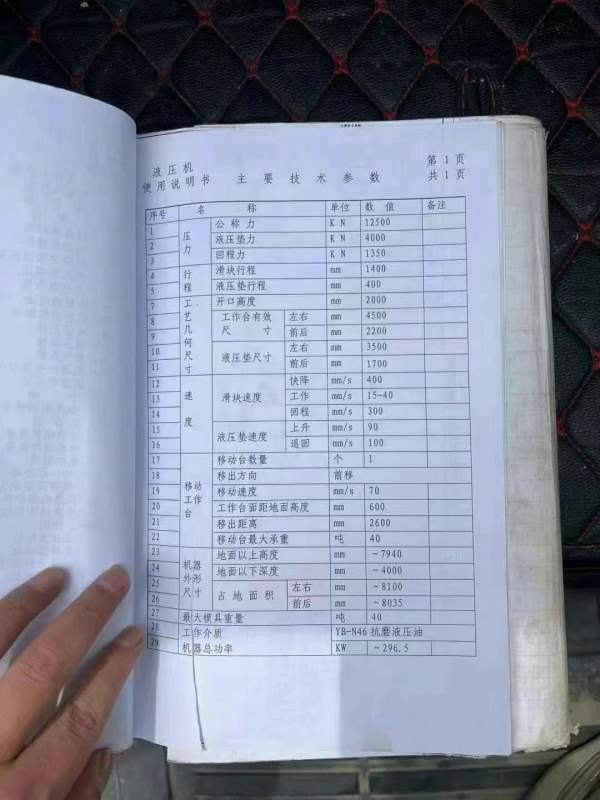 液压机 第1页
使用说明书 主要技术参数 共1页
序号 名称 单位 数值 备注
1 压力 公称力 KN 12500
2 液压垫力 KN 4000
3 回程力 KN 1350
4 行程 滑块行程 mm 1400
5 液压垫行程 mm 400
7 工艺几何尺寸 开口高度 mm 2000
8 工作台有效尺寸 左右 mm 4500
9 前后 mm 2200
10 液压垫尺寸 左右 mm 3500
11 前后 mm 1700
12 速度 滑块速度 快降 mm/s 400
13 工作 mm/s 15-40
14 回程 mm/s 300
15 液压垫速度 上升 mm/s 90
16 退回 mm/s 100
17 移动工作台 移动台数量 个 1
18 移出方向 前移
19 移动速度 mm/s 70
20 工作台面距地面高度 mm 600
21 移出距离 mm 2600
22 移动台最大承重 吨 40
23 机器外形尺寸 地面以上高度 mm ~7940
24 地面以下深度 mm ~4000
25 占地面积 左右 mm ~8100
26 前后 mm ~8035
27 最大模具重量 吨 40
28 工作介质 YB-N46抗磨液压油
29 机器总功率 KW ~296.5